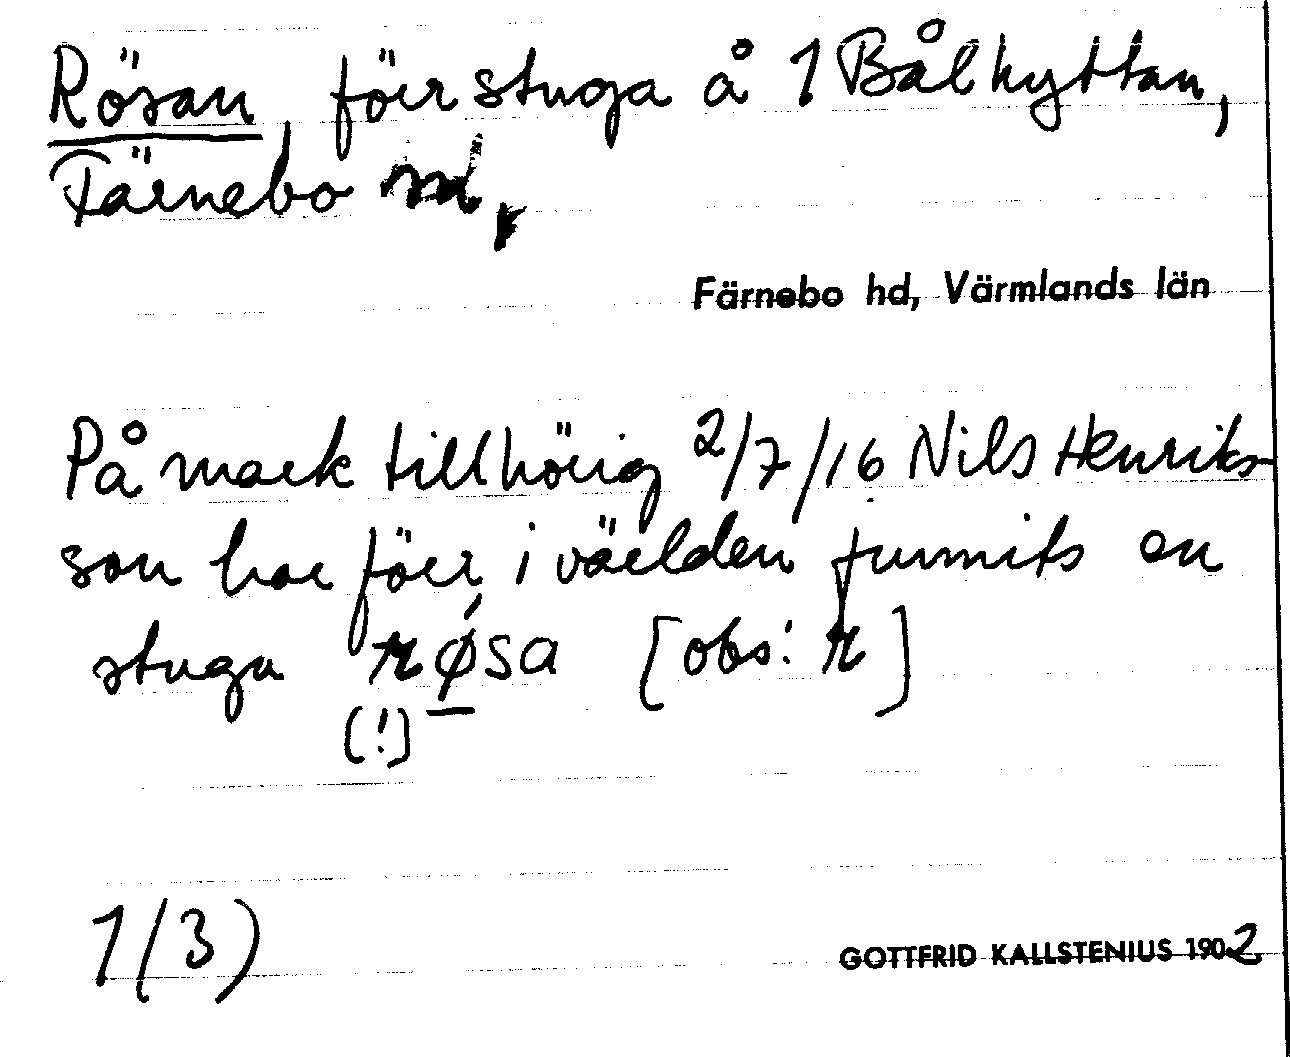 Rösan, förr stuga å 1 Bålhyttan,
Färnebo sn,
Färnebo hd, Värmlands län
På mark tillhörig 2/7/16 Nils Henriks-
son har förr i världen funnits en
stuga rø´sa [obs! r]
(!)
1(3)
GOTTFRID KALLSTENIUS 1902